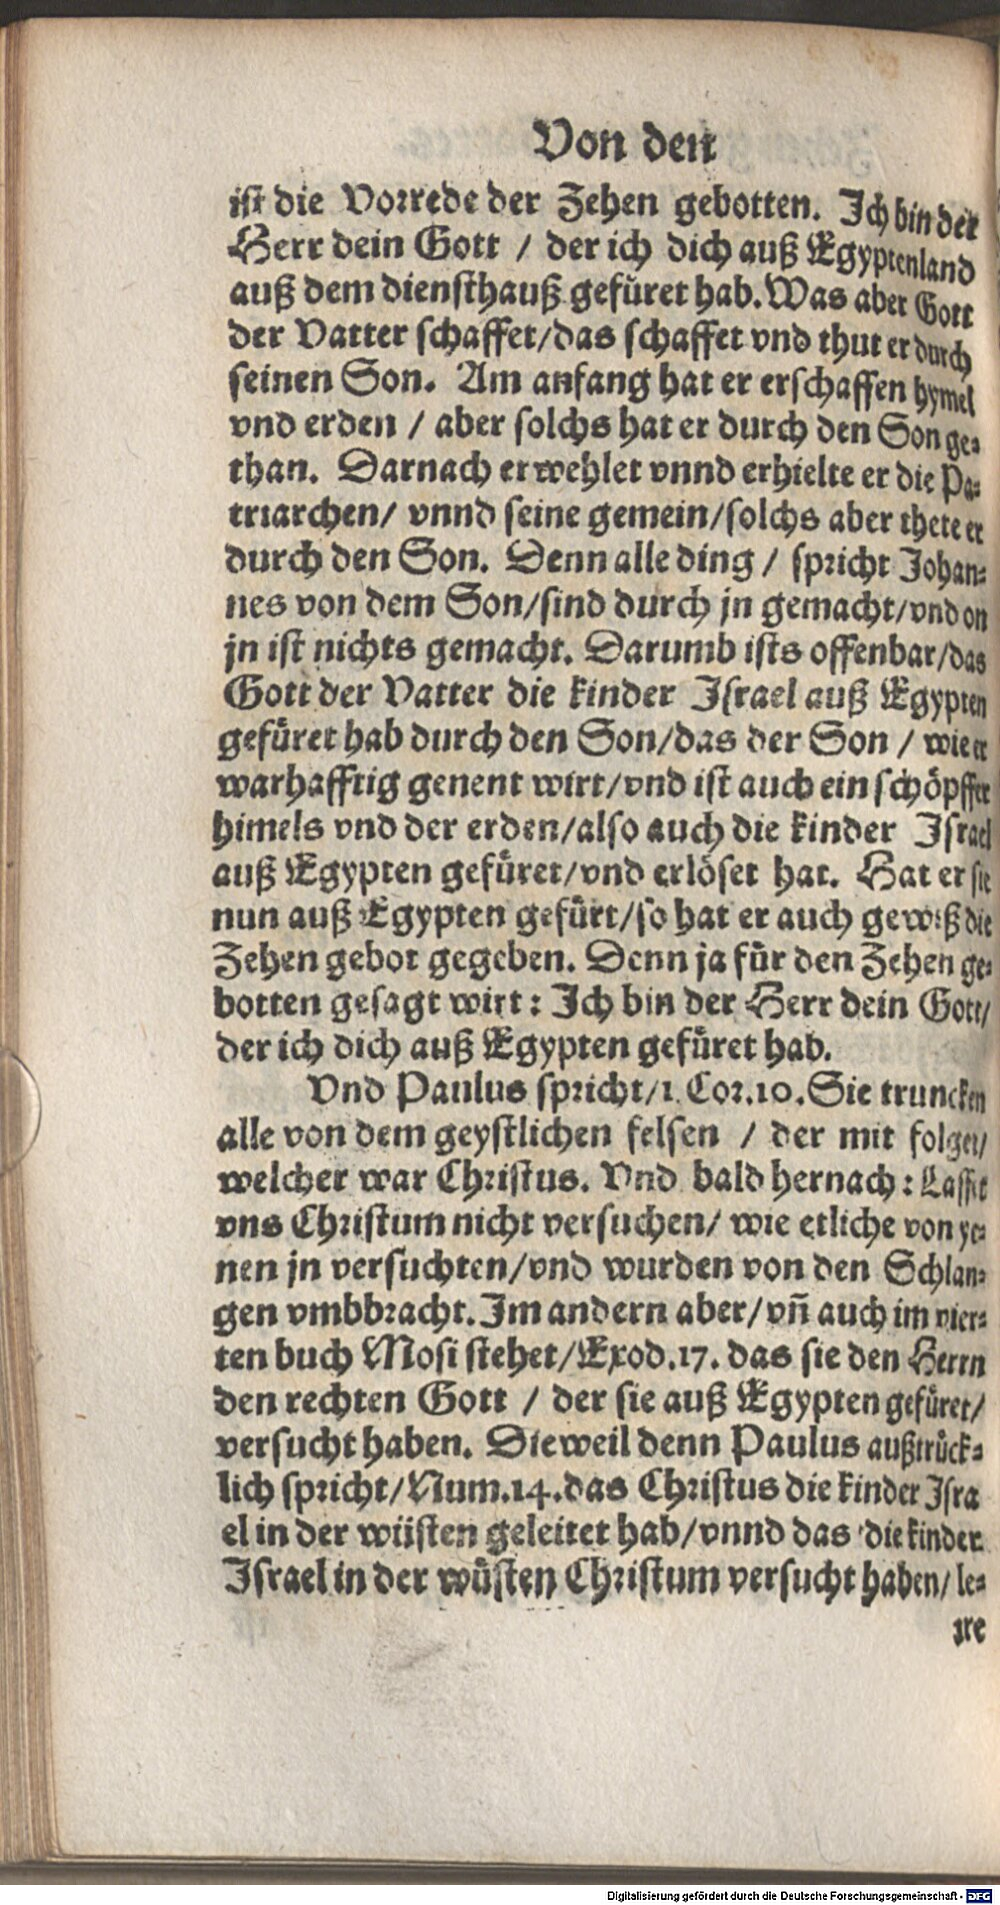 Von den
ist die Vorrede der Zehen gebotten. Ich bin der
Herr dein Gott / der ich dich auß Egyptenland
auß dem diensthauß gefüret hab. Was aber Gott
der Vatter schaffet/das schaffet vnd thut er durch
seinen Son. Am anfang hat er erschaffen hymel
vnd erden / aber solchs hat er durch den Son ge-
than. Darnach erwehlet vnnd erhielte er die Pa-
triarchen/ vnnd seine gemein/solchs aber thete er
durch den Son. Denn alle ding / spricht Johan-
nes von dem Son/sind durch jn gemacht/vnd on
jn ist nichts gemacht. Darumb ists offenbar/das
Gott der Vatter die kinder Israel auß Egypten
gefüret hab durch den Son/das der Son / wie er
warhafftig genent wirt/vnd ist auch ein schöpffer
himels vnd der erden/also auch die kinder Israel
auß Egypten gefüret/vnd erlöset hat. Hat er sie
nun auß Egypten gefürt/so hat er auch gewiß die
Zehen gebot gegeben. Denn ja für den Zehen ge-
botten gesagt wirt: Ich bin der Herr dein Gott/
der ich dich auß Egypten gefüret hab.
Vnd Paulus spricht/1. Cor.10. Sie truncken
alle von dem geystlichen felsen / der mit folget/
welcher war Christus. Vnd bald hernach: Lasset
vns Christum nicht versuchen/ wie etliche von ye-
nen jn versuchten/vnd wurden von den Schlan-
gen vmbbracht. Im andern aber/vn̄ auch im vier-
ten buch Mosi stehet/Exod.17. das sie den Herrn
den rechten Gott / der sie auß Egypten gefüret/
versucht haben. Dieweil denn Paulus außtrück-
lich spricht/Num.14.das Christus die kinder Isra
el in der wüsten geleitet hab/vnnd das die kinder
Israel in der wüsten Christum versucht haben/ le-
 re
Digitalisierung gefördert durch die Deutsche Forschungsgemeinschaft - DFG